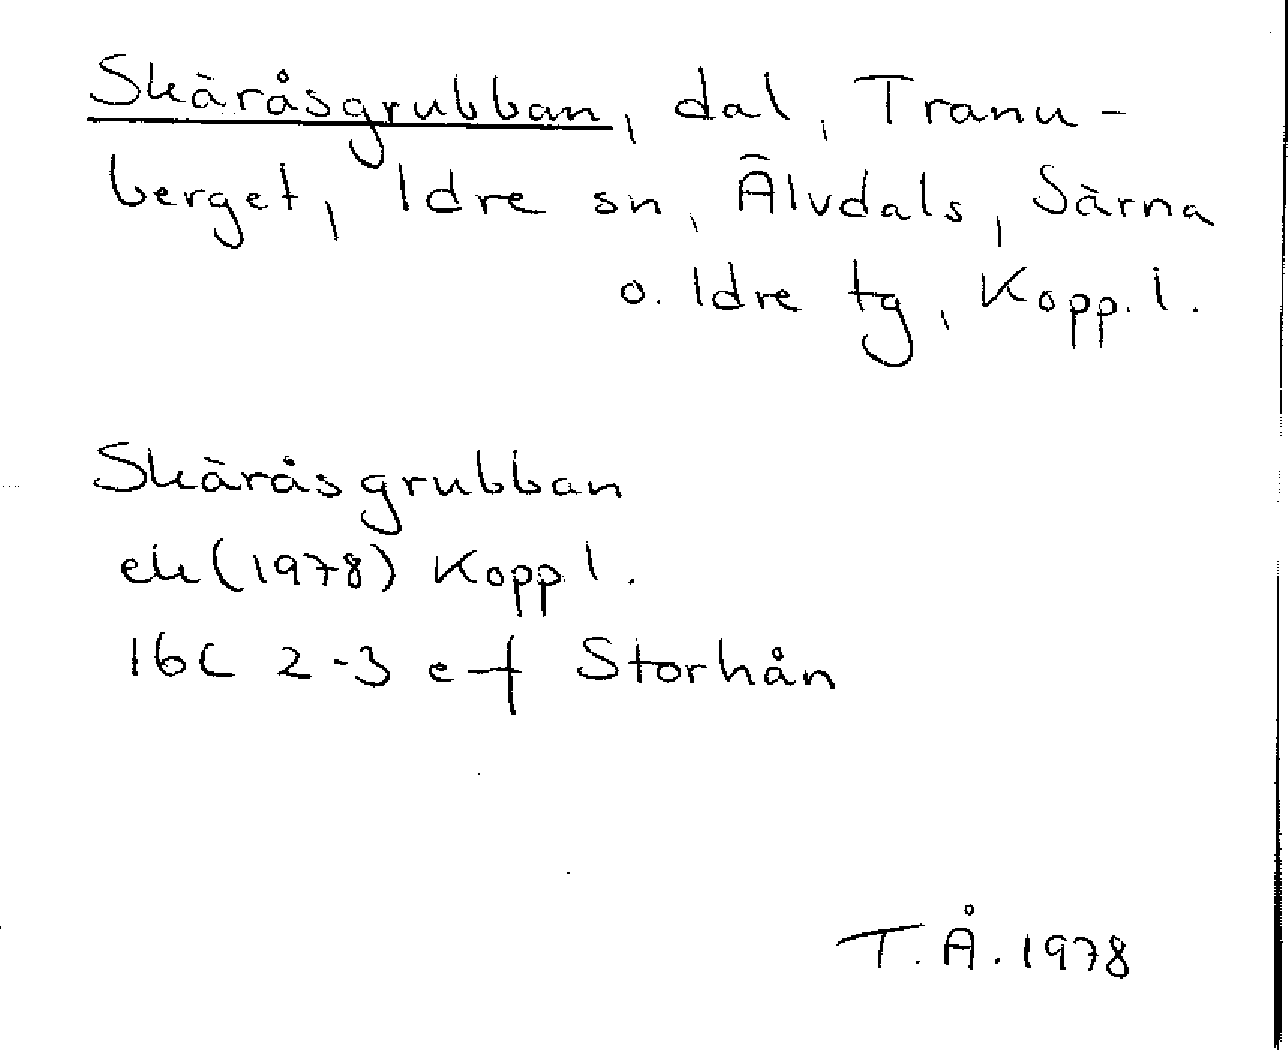 Skäråsgrubban, dal, Tranu-
berget, Idre sn, Älvdals, Särna
o. Idre tg, Kopp. l.
Skäråsgrubban
ek (1978) Kopp l.
16C 2-3 e-f Storhån
T.Å. 1978